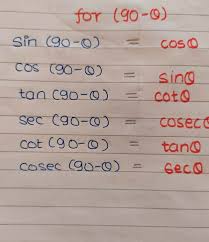 for (90-θ)
sin (90-θ) = cosθ
cos (90-θ) = sinθ
tan (90-θ) = cotθ
sec (90-θ) = cosecθ
cot (90-θ) = tanθ
cosec (90-θ) = secθ